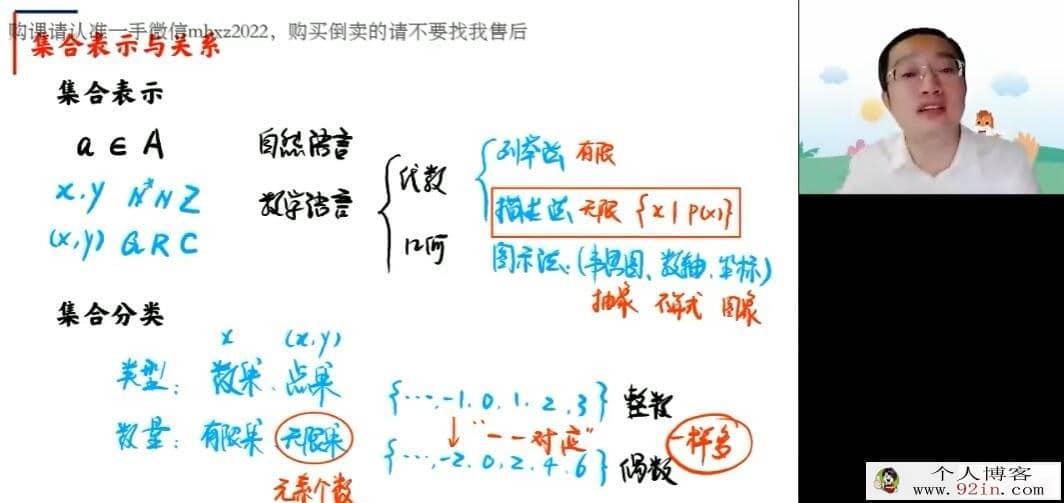 购课请认准一手微信mbxz2022，购买倒卖的请不要找我售后
集合表示与关系
集合表示
a ∈ A 自然语言
x,y N* N Z 数学语言
(x,y) Q R C
代数
几何
列举法 有限
描述法 无限 {x | P(x)}
图示法:(韦恩图、数轴、坐标)
抽象 不等式 图象
集合分类
x (x,y)
类型: 数集、点集
数量: 有限集 无限集
元素个数
{…,-1,0,1,2,3} 整数
↓ "一一对应" 一样多
{…,-2,0,2,4,6} 偶数
个人博客
www.92in.com